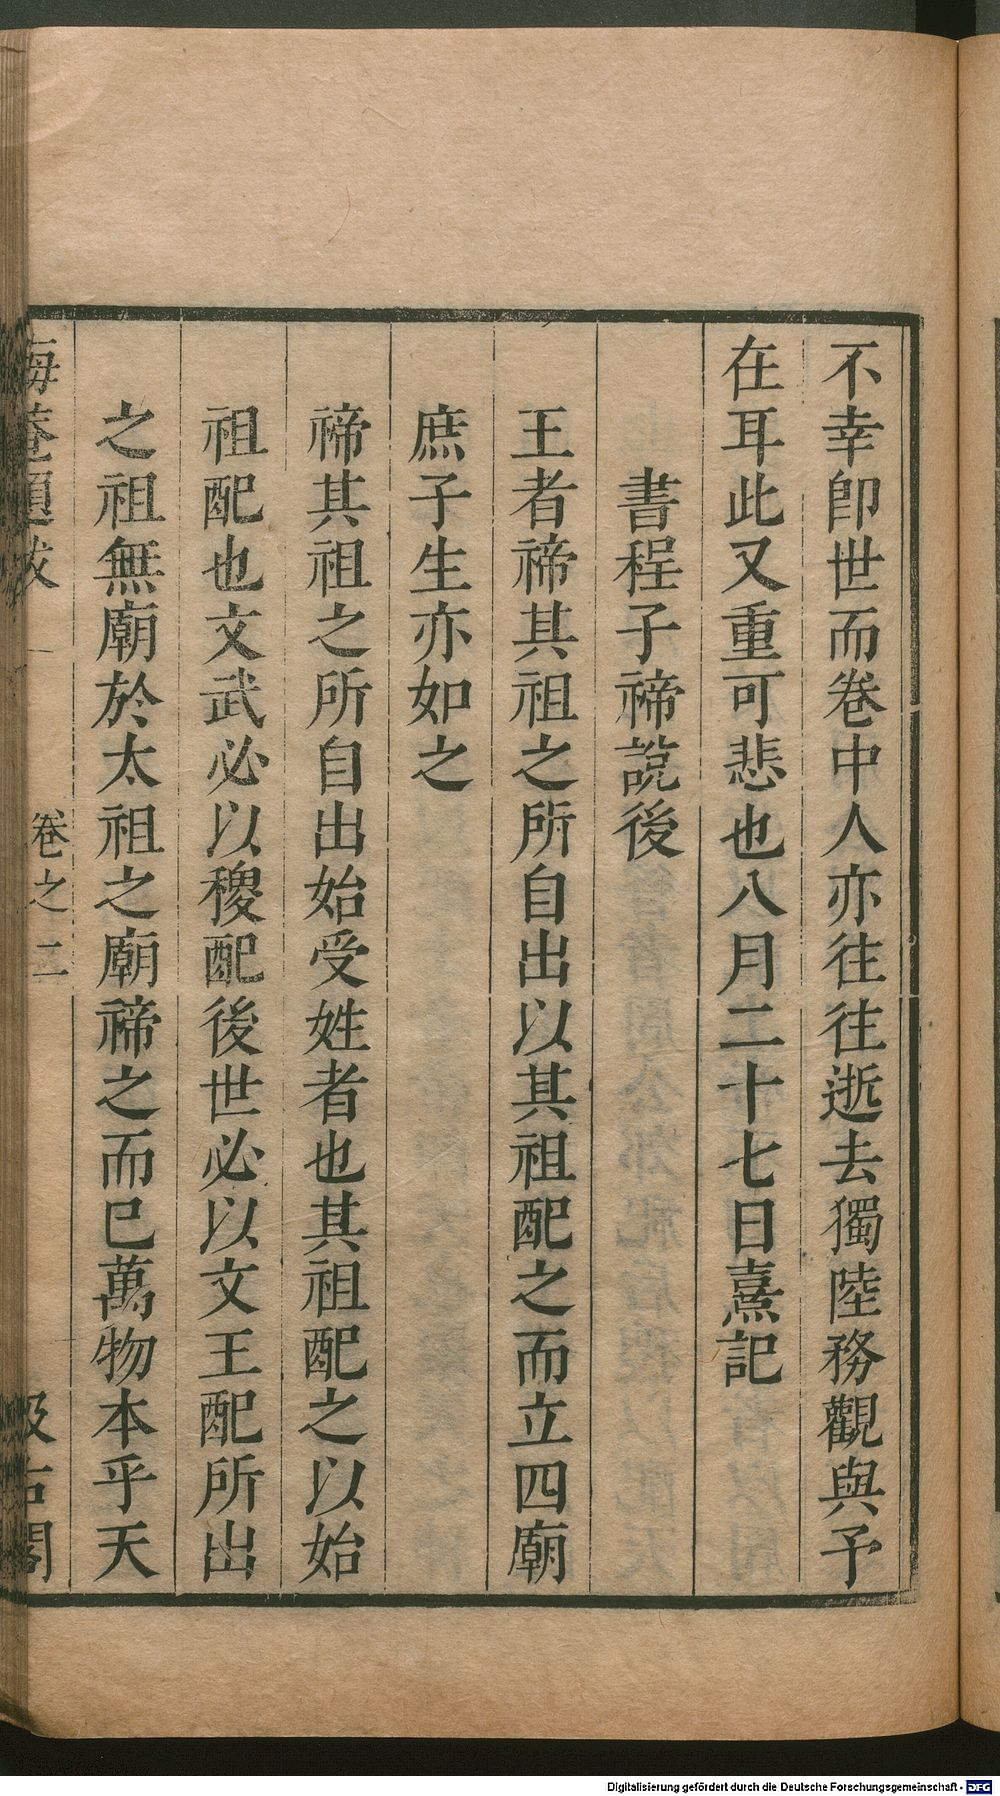 不幸卽世而卷中人亦往往逝去獨陸務觀與予
在耳此又重可悲也八月二十七日熹記
書程子禘說後
王者禘其祖之所自出以其祖配之而立四廟
庶子生亦如之
禘其祖之所自出始受姓者也其祖配之以始
祖配也文武必以稷配後世必以文王配所出
之祖無廟於太祖之廟禘之而已萬物本乎天
晦菴題跋 卷之二 汲古閣
Digitalisierung gefördert durch die Deutsche Forschungsgemeinschaft - DFG